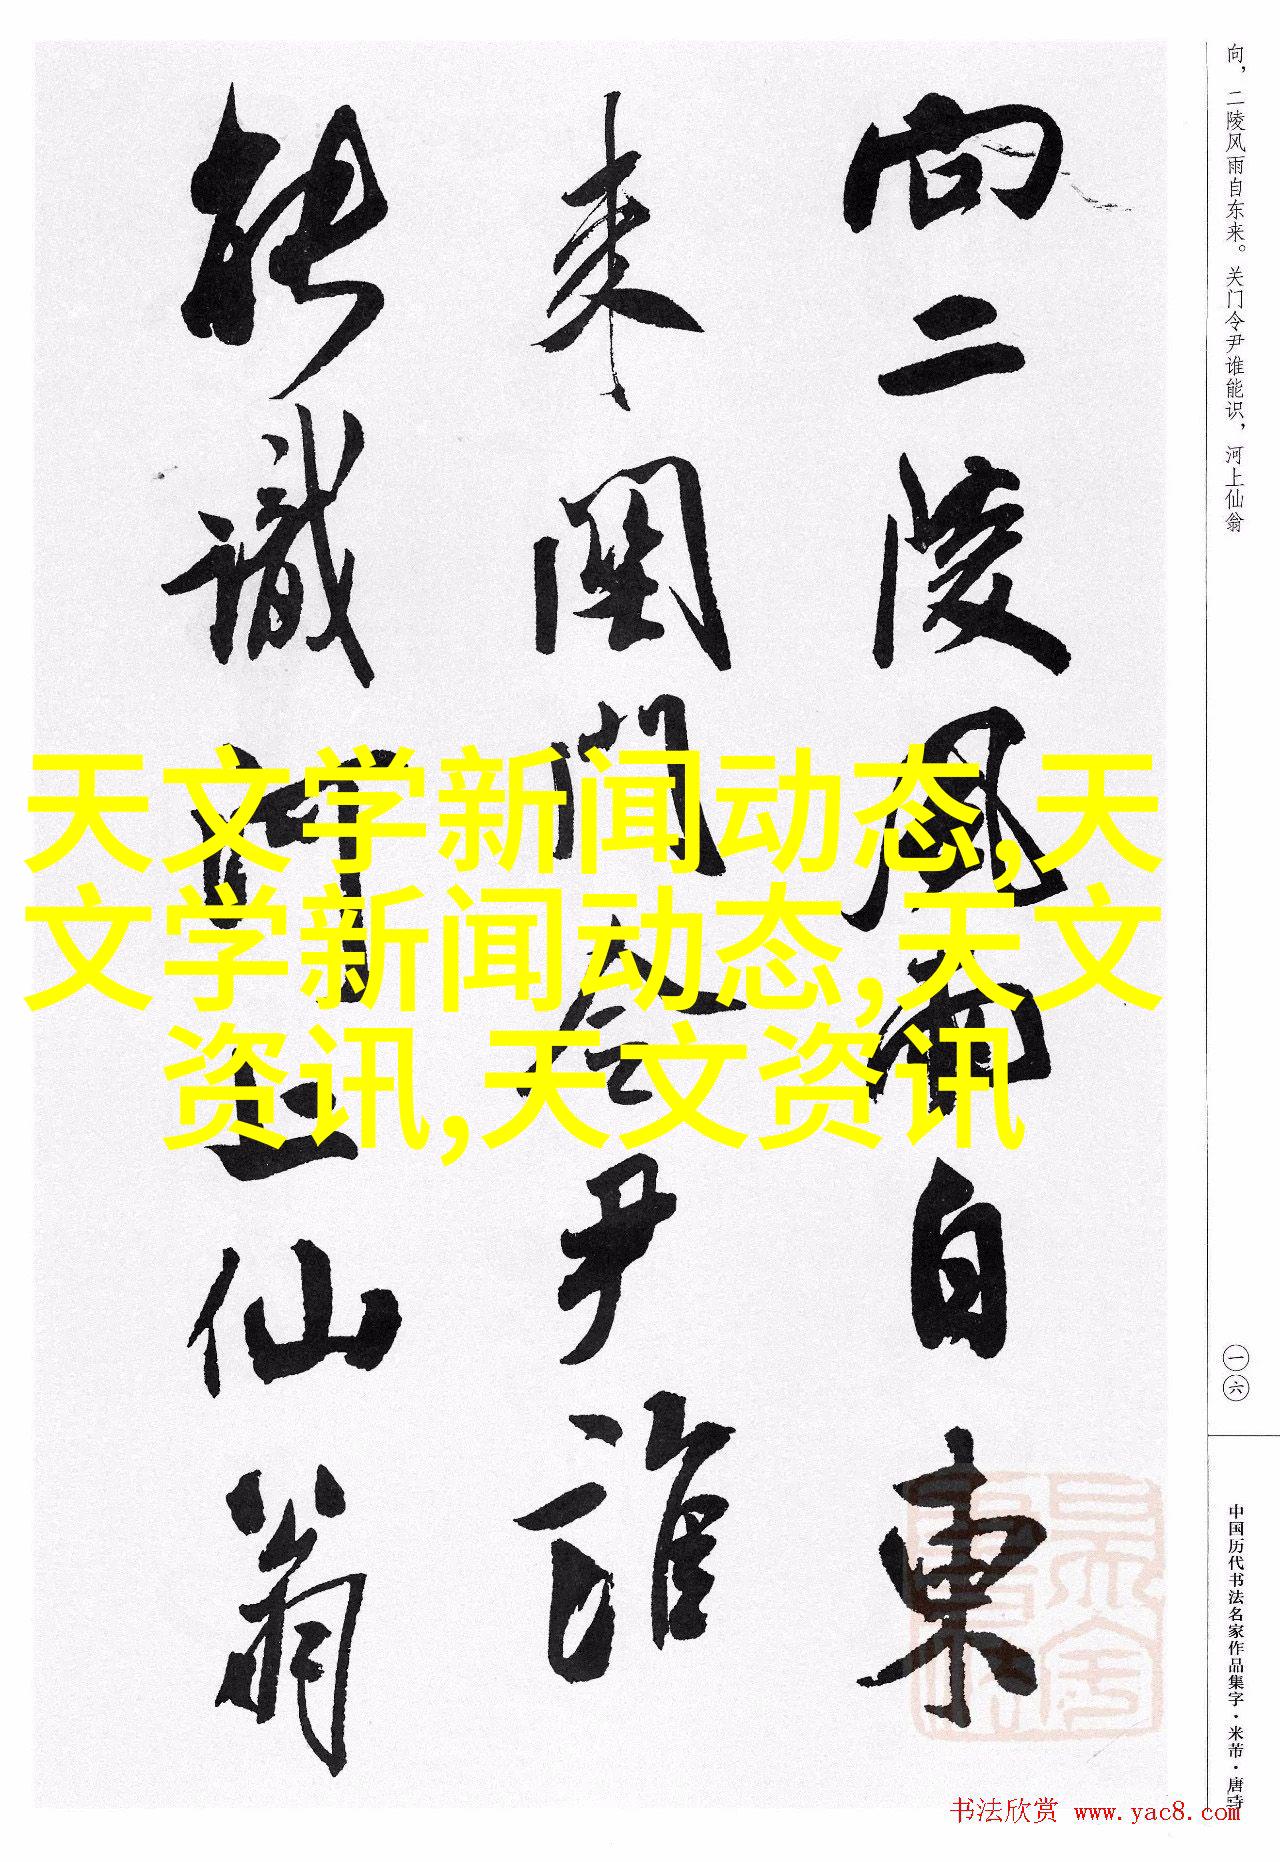 向二陵风雨自東
来関門令尹誰
能識河上仙翁
天文学新闻动态,天
文学新闻动态,天文
资讯,天文资讯
向，二陵风雨自东来。关门令尹谁能识，河上仙翁
一六
中国历代书法名家作品集字·米芾·唐诗
书法欣赏 www.yac8.com